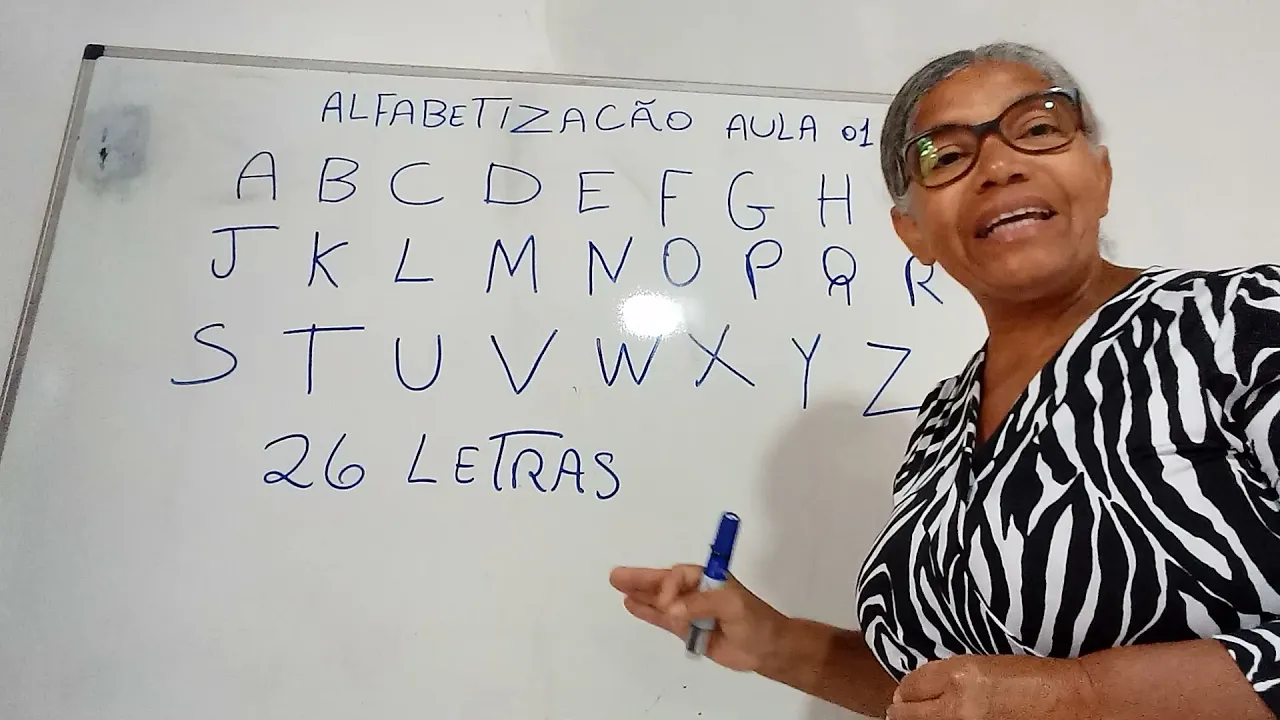 ALFABETIZACÃO AULA 01
A B C D E F G H
J K L M N O P Q R
S T U V W X Y Z
26 LETRAS